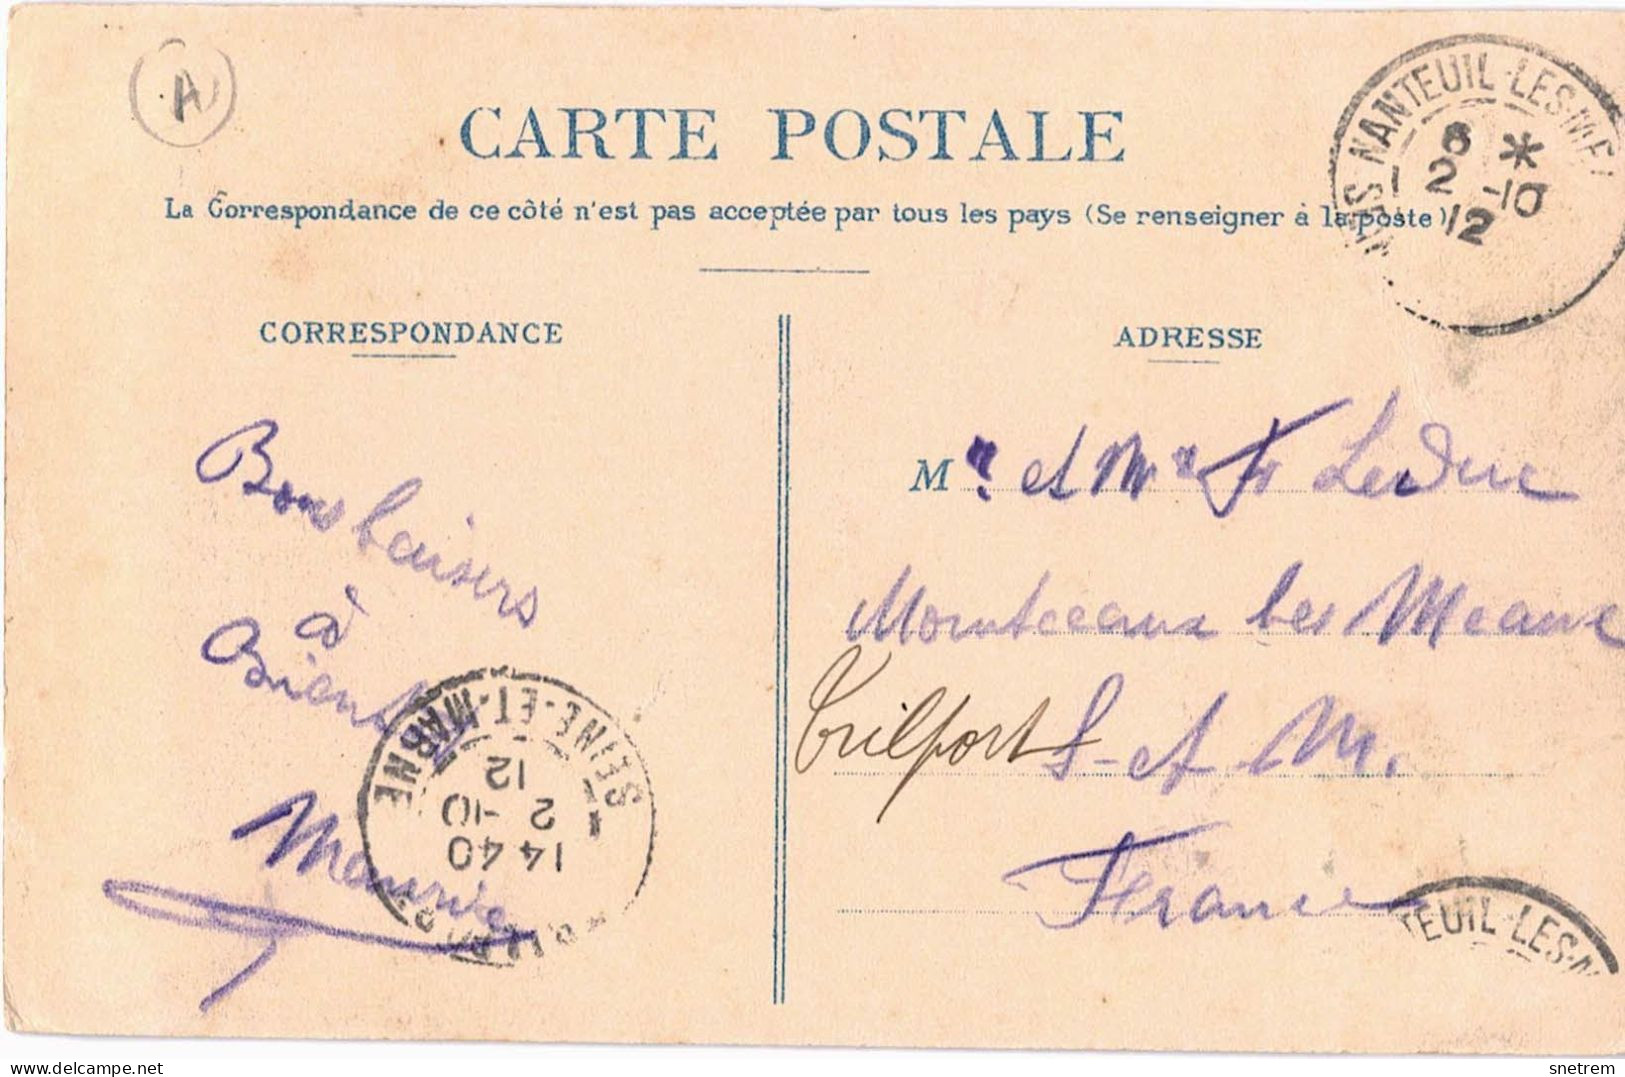 A
CARTE POSTALE
La Correspondance de ce côté n'est pas acceptée par tous les pays (Se renseigner à la poste)
NANTEUIL-LES-ME
8 *
2 -10
12
CORRESPONDANCE
ADRESSE
Bons baisers
à
Bientôt
Maurice
Mr et Mme Leduc
Montceaux les Meaux
Trilport S-et M.
France
SEINE-ET-MARNE
14 40
2 -10
12
TEUIL-LES-M
delcampe.net
snetrem